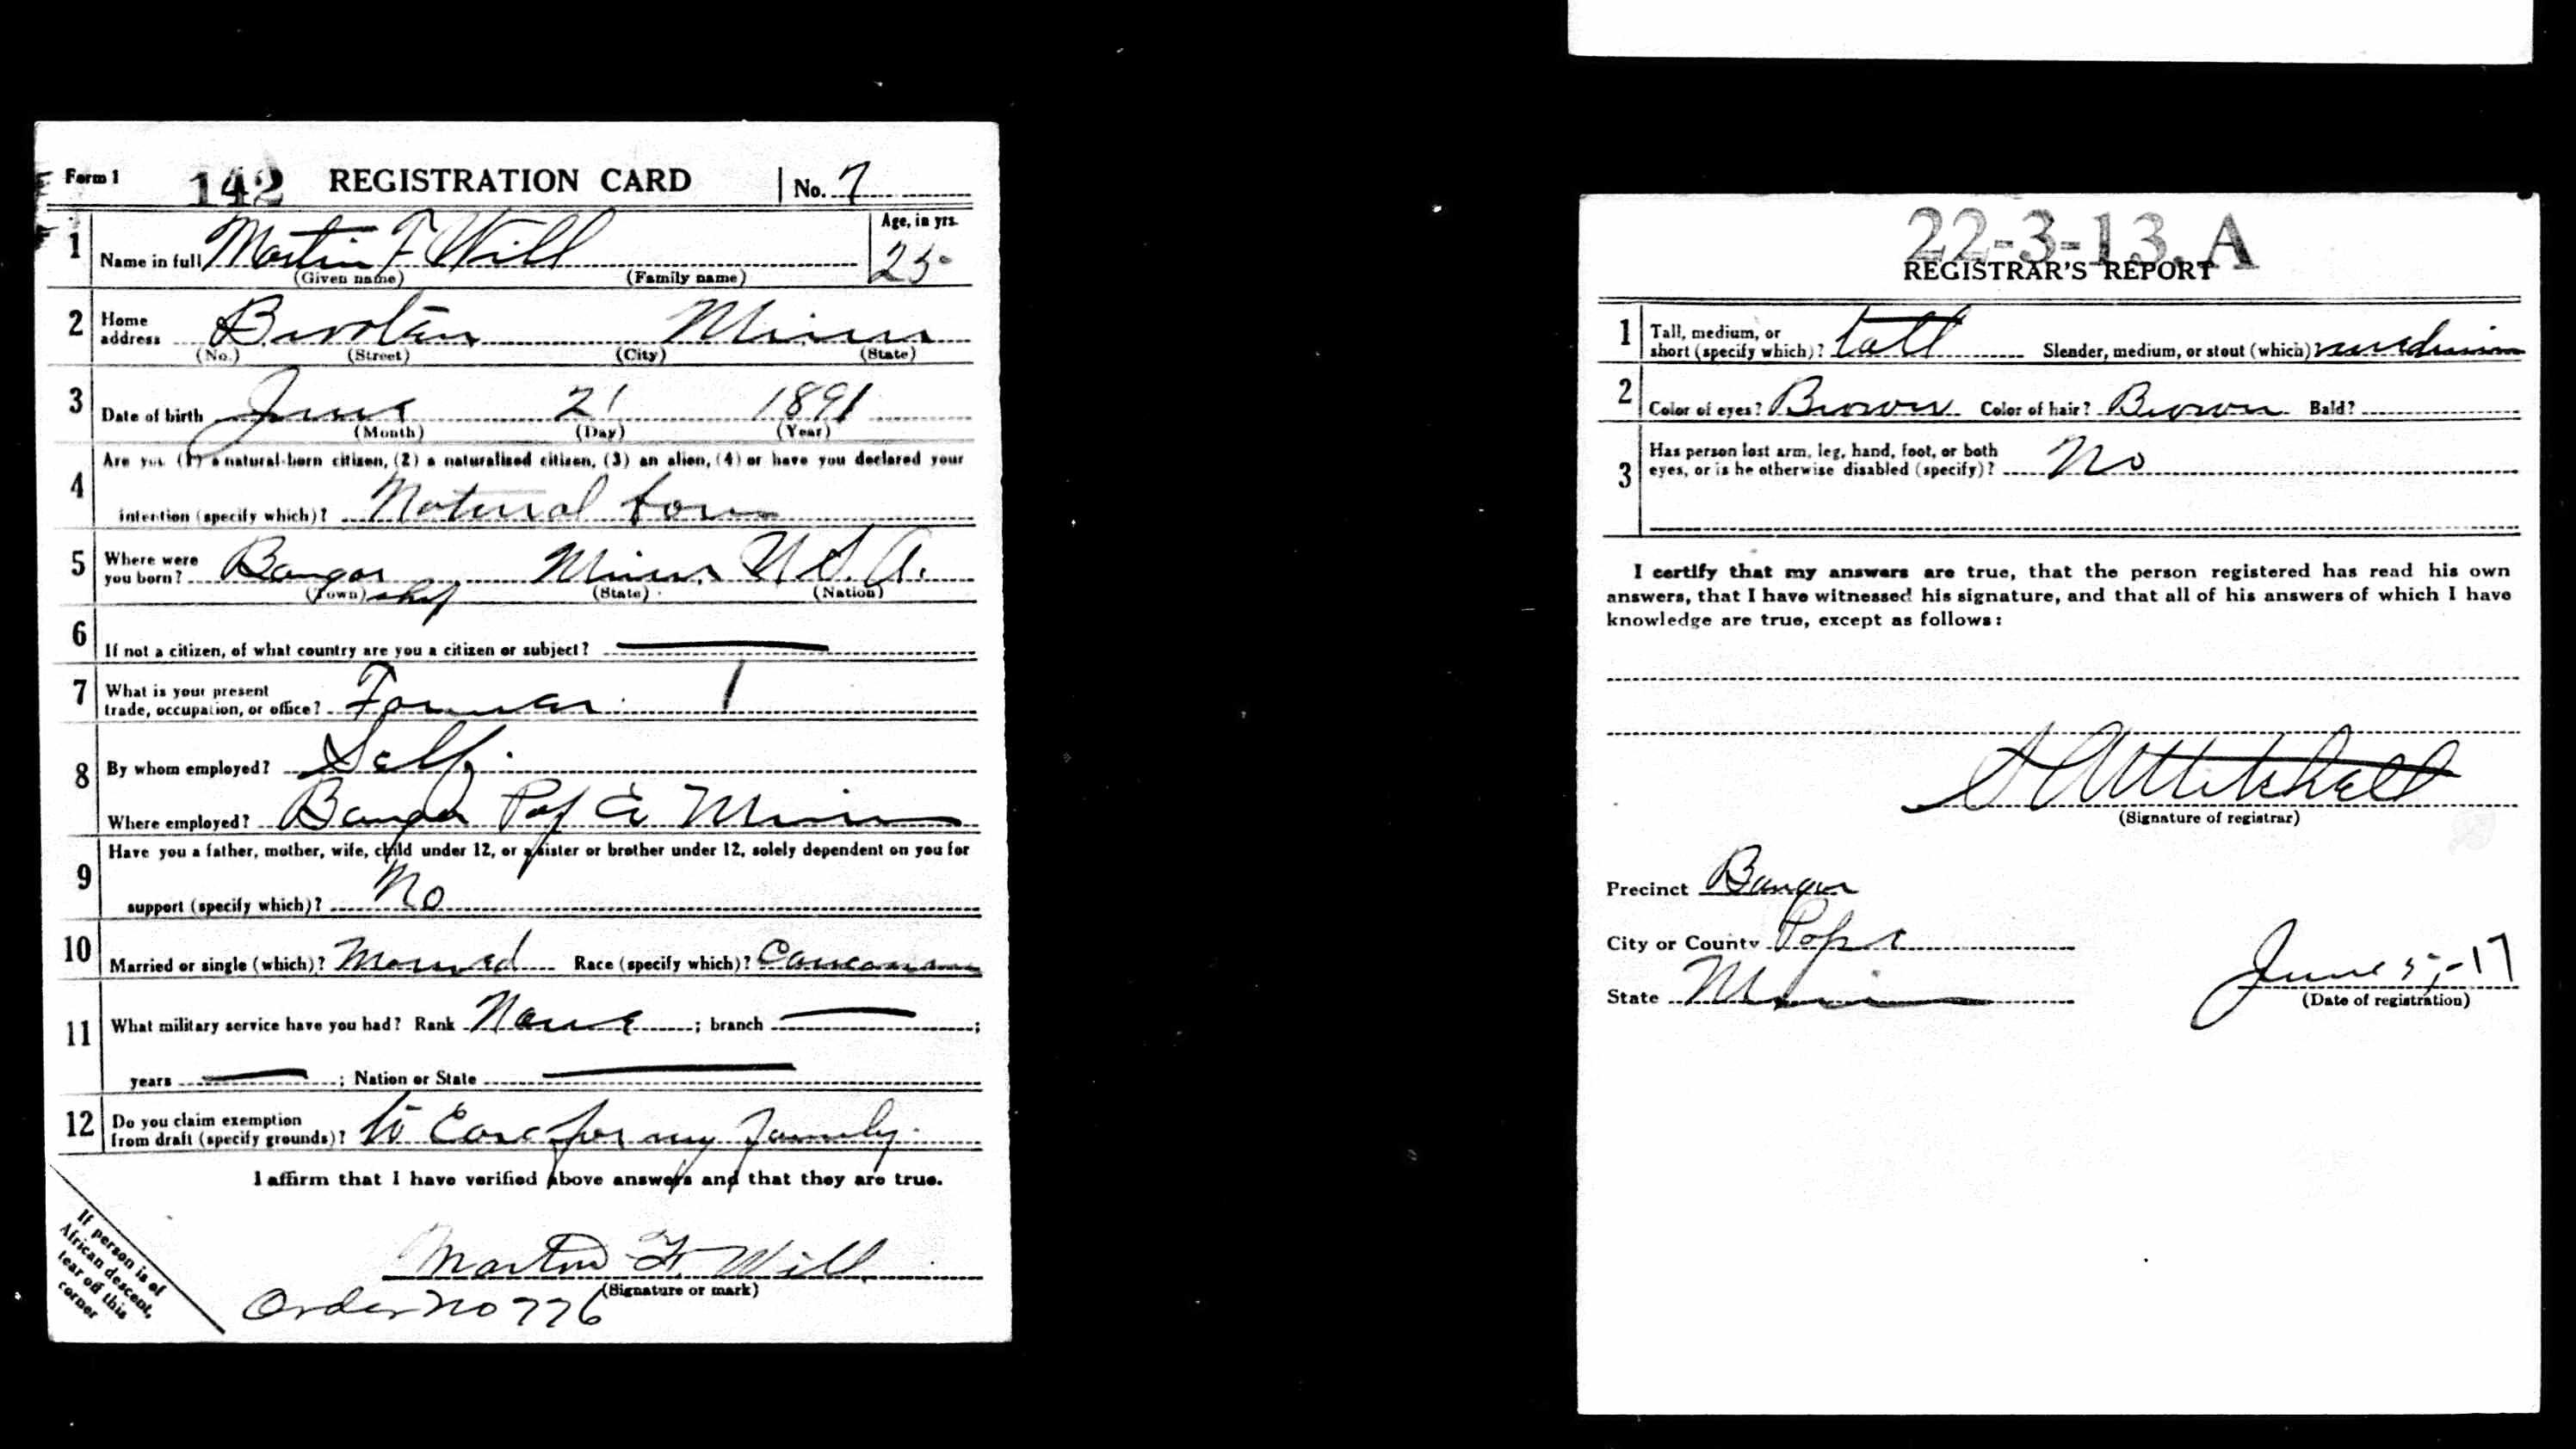 Form 1 142 REGISTRATION CARD No. 7
1 Name in full Martin F Will Age, in yrs. 25
(Given name) (Family name)
2 Home address Brooten Minn
(No.) (Street) (City) (State)
3 Date of birth June 21 1891
(Month) (Day) (Year)
4 Are you (1) a natural-born citizen, (2) a naturalized citizen, (3) an alien, (4) or have you declared your
intention (specify which)? Natural born
5 Where were you born? Bangor Minn. U.S.A.
(Town) ship (State) (Nation)
6 If not a citizen, of what country are you a citizen or subject?
7 What is your present trade, occupation, or office? Farmer 1
8 By whom employed? Self.
Where employed? Bangor Pop Co Minn
9 Have you a father, mother, wife, child under 12, or a sister or brother under 12, solely dependent on you for
support (specify which)? No
10 Married or single (which)? Married Race (specify which)? Caucasian
11 What military service have you had? Rank None ; branch ;
years ; Nation or State
12 Do you claim exemption from draft (specify grounds)? to Care for my family.
I affirm that I have verified above answers and that they are true.
Martin F. Will
(Signature or mark)
Order no 776
If person is of
African descent,
tear off this
corner
22-3-13. A
REGISTRAR'S REPORT
1 Tall, medium, or short (specify which)? tall Slender, medium, or stout (which)? medium
2 Color of eyes? Brown Color of hair? Brown Bald?
3 Has person lost arm, leg, hand, foot, or both eyes, or is he otherwise disabled (specify)? No
I certify that my answers are true, that the person registered has read his own
answers, that I have witnessed his signature, and that all of his answers of which I have
knowledge are true, except as follows:
S A Mitchell
(Signature of registrar)
Precinct Bangor
City or County Pope
State Minn
June 5, -17
(Date of registration)